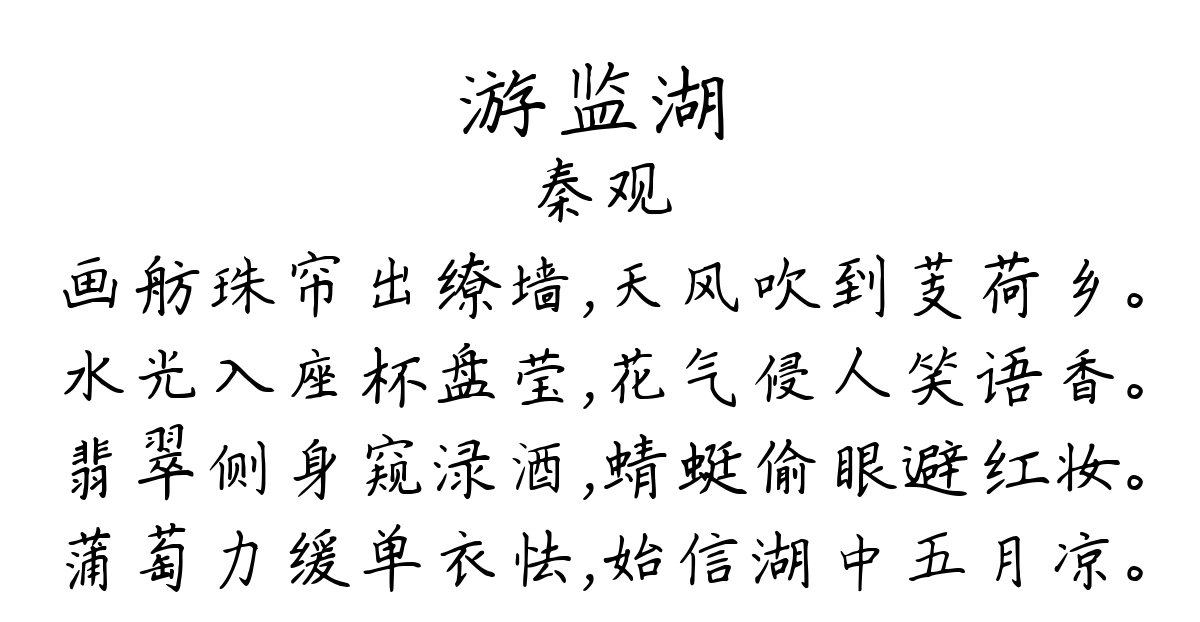 游监湖
秦观
画舫珠帘出缭墙,天风吹到芰荷乡。
水光入座杯盘莹,花气侵人笑语香。
翡翠侧身窥渌酒,蜻蜓偷眼避红妆。
蒲萄力缓单衣怯,始信湖中五月凉。